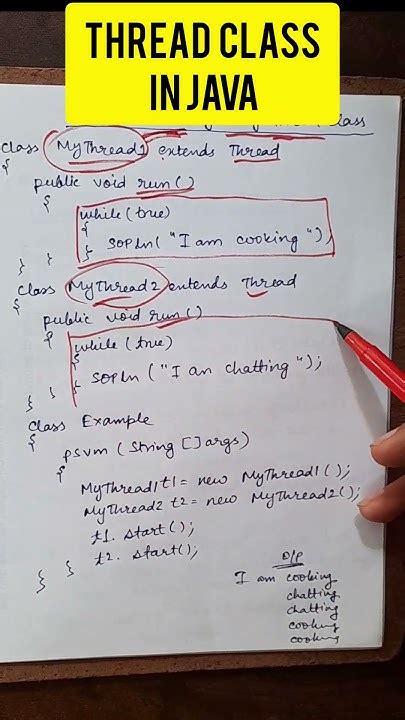 THREAD CLASS
IN JAVA
class
class MyThread1 extends Thread
{
public void run()
{
while(true)
{
} SOPln("I am cooking");
} }
class MyThread2 extends Thread
{
public void run()
{
while(true)
{
} SOPln ("I am chatting");
} }
class Example
{
psvm (String []args)
{
MyThread1 t1 = new MyThread1();
MyThread2 t2 = new MyThread2();
t1. start();
t2. start();
} }
O/P
I am cooking
chatting
chatting
cooking
cooking